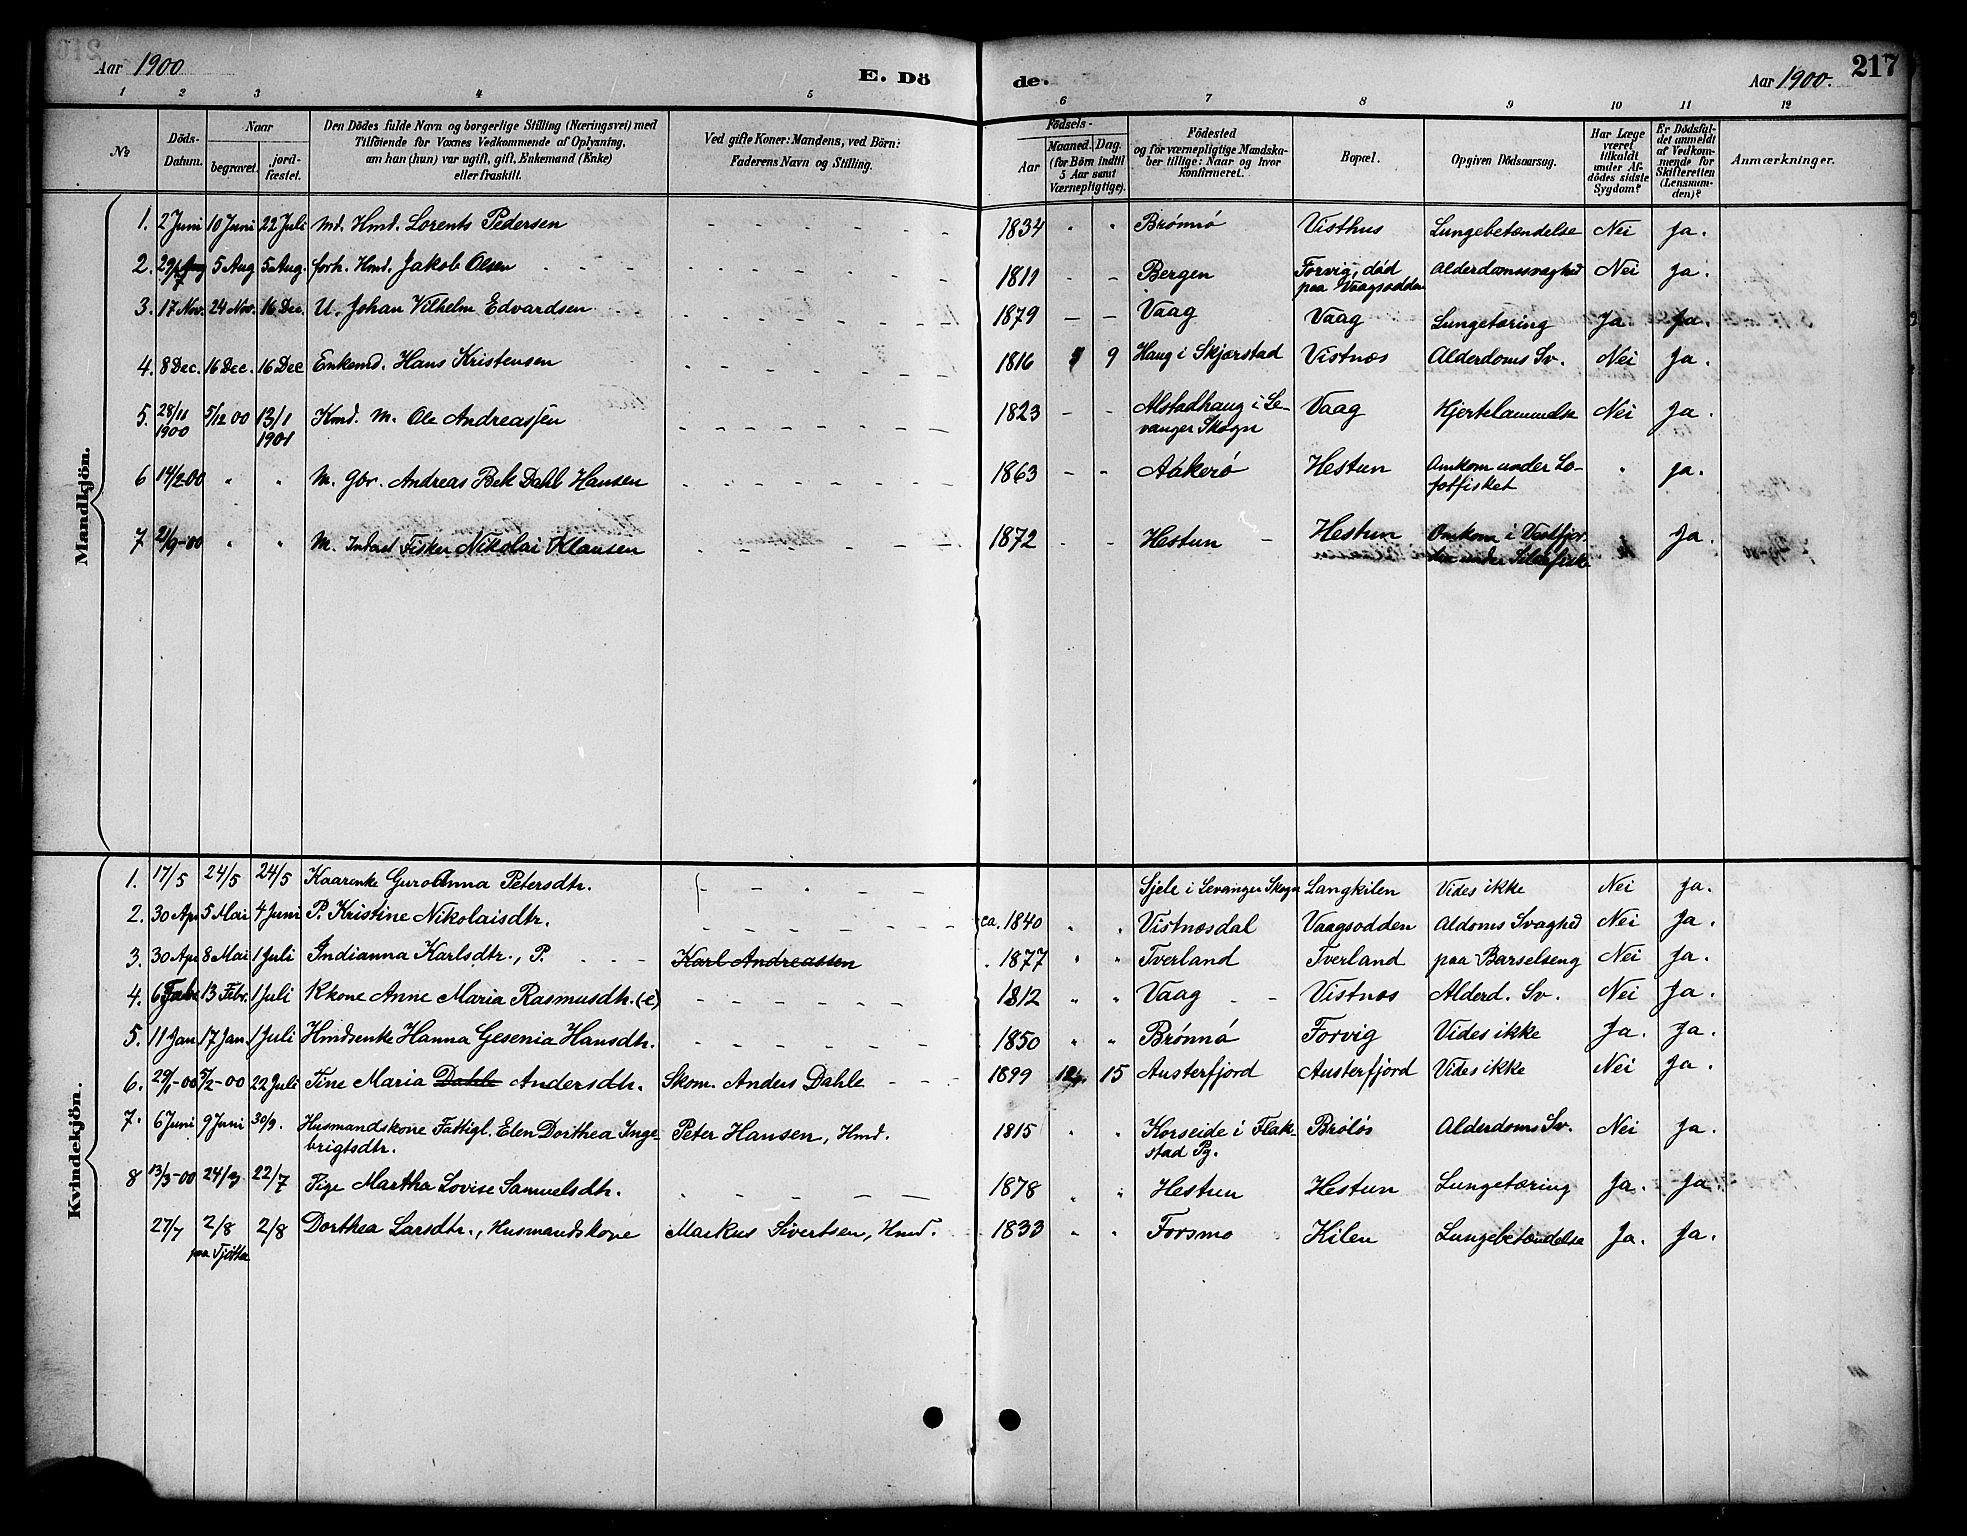 Aar 1900
E. Dö
de.
Aar 1900.
217
1 2 3 4 5
6 7 8 9 10 11 12
№
Döds-
Datum.
Naar
begravet.
jord-
fæstet.
Den Dödes fulde Navn og borgerlige Stilling (Næringsvei) med
Tilföiende for Voxnes Vedkommende af Oplysning,
om han (hun) var ugift, gift, Enkemand (Enke)
eller fraskilt.
Ved gifte Koner: Mandens, ved Börn:
Faderens Navn og Stilling.
Födsels-
Aar
Maaned. Dag.
(for Börn indtil
5 Aar samt
Værnepligtige).
Födested
og for værnepligtige Mandska-
ber tillige: Naar og hvor
konfirmeret.
Bopæl.
Opgiven Dödsaarsag.
Har Læge
været
tilkaldt
under Af-
dödes sidste
Sygdom?
Er Dödsfal-
det anmeldt
af Vedkom-
mende for
Skifteretten
(Lensman-
den)?
Anmærkninger.
Mandkjön.
1. 2 Juni 10 Juni 22 Juli Md. Hmd. Lorents Pedersen 1834 " " Brønnø Visthus Lungebetændelse Nei Ja.
2. 29/7 5 Aug 5 Aug. forh. Hmd. Jakob Olsen 1811 - - Bergen Forvig, død Alderdomssvaghed Nei Ja.
paa Vaagsodden
3. 17 Nov. 24 Nov. 16 Dec. U. Johan Vilhelm Edvardsen 1879 - - Vaag Vaag Lungetæring Ja. Ja.
4. 8 Dec. 16 Dec. 16 Dec Enkemd. Hans Kristensen 1816 9 Haug i Skjerstad Vistnæs Alderdoms Sv. Nei Ja.
5. 28/11 5/12 00 13/1 Kmd. M. Ole Andreassen 1823 - - Alstadhaug i Le- Vaag Hjertelammelse Nei Ja.
1900 1901 vanger Skogn
6 14/2 00 " " M. Gbr. Andreas Bek Dahl Hansen 1863 - - Aakerø Hestun Omkom under Lo- " Ja.
fotfisket
7 21/9-00 " " M. Inderst Fisker Nikolai Klausen 1872 - - Hestun - Hestun Omkom i Vestfjor- Ja.
den under Sildefiske
Kvindekjön.
1. 17/5 24/5 24/5 Kaarenke Guroanna Petersdtr. Sjele i Levanger Skogn Langkilen Vides ikke Nei Ja.
2. 30 Apr 5 Mai 4 Juni P. Kristine Nikolaisdtr. ca. 1840 " " Vistnæsdal Vaagsodden Aldoms Svaghed Nei Ja.
3. 30 Apr 8 Mai 1 Juli Indianna Karlsdtr., P. Karl Andreassen 1877 " " Tverland Tverland paa Barselseng Nei Ja.
4. 6 Febr 13 Febr. 1 Juli Kkone Anne Maria Rasmusdtr. (e) 1812 " " Vaag - - Vistnæs Alderd. Sv. Nei Ja.
5. 11 Jan 17 Jan. 1 Juli Hmdsenke Hanna Gesenia Hansdtr. 1850 " " Brønnø Forvig Vides ikke Ja. Ja.
6. 29/1-00 5/2-00 22 Juli Tine Maria Dahle Andersdtr. Skom. Anders Dahle 1899 12 15 Austerfjord Austerfjord Vides ikke Nei Ja.
7. 6 Juni 9 Juni 30/9. Husmandskone Fattigl. Elen Dorithea Inge- Peter Hansen, Hmd. 1815 " " Korseide i Flak- Brøløs Alderdoms Sv. Nei Ja.
brigtsdtr. stad Pg.
8 13/3-00 24/3 22/7 Pige Martha Lovise Samuelsdtr. 1878 " " Hestun Hestun Lungetæring Ja. Ja
27/7 2/8 2/8 Dorthea Larsdtr., Husmandskone Markus Sivertsen, Hmd. 1833 " " Forsmo Kilen Lungebetændelse Ja. Ja.
paa Tjøtta